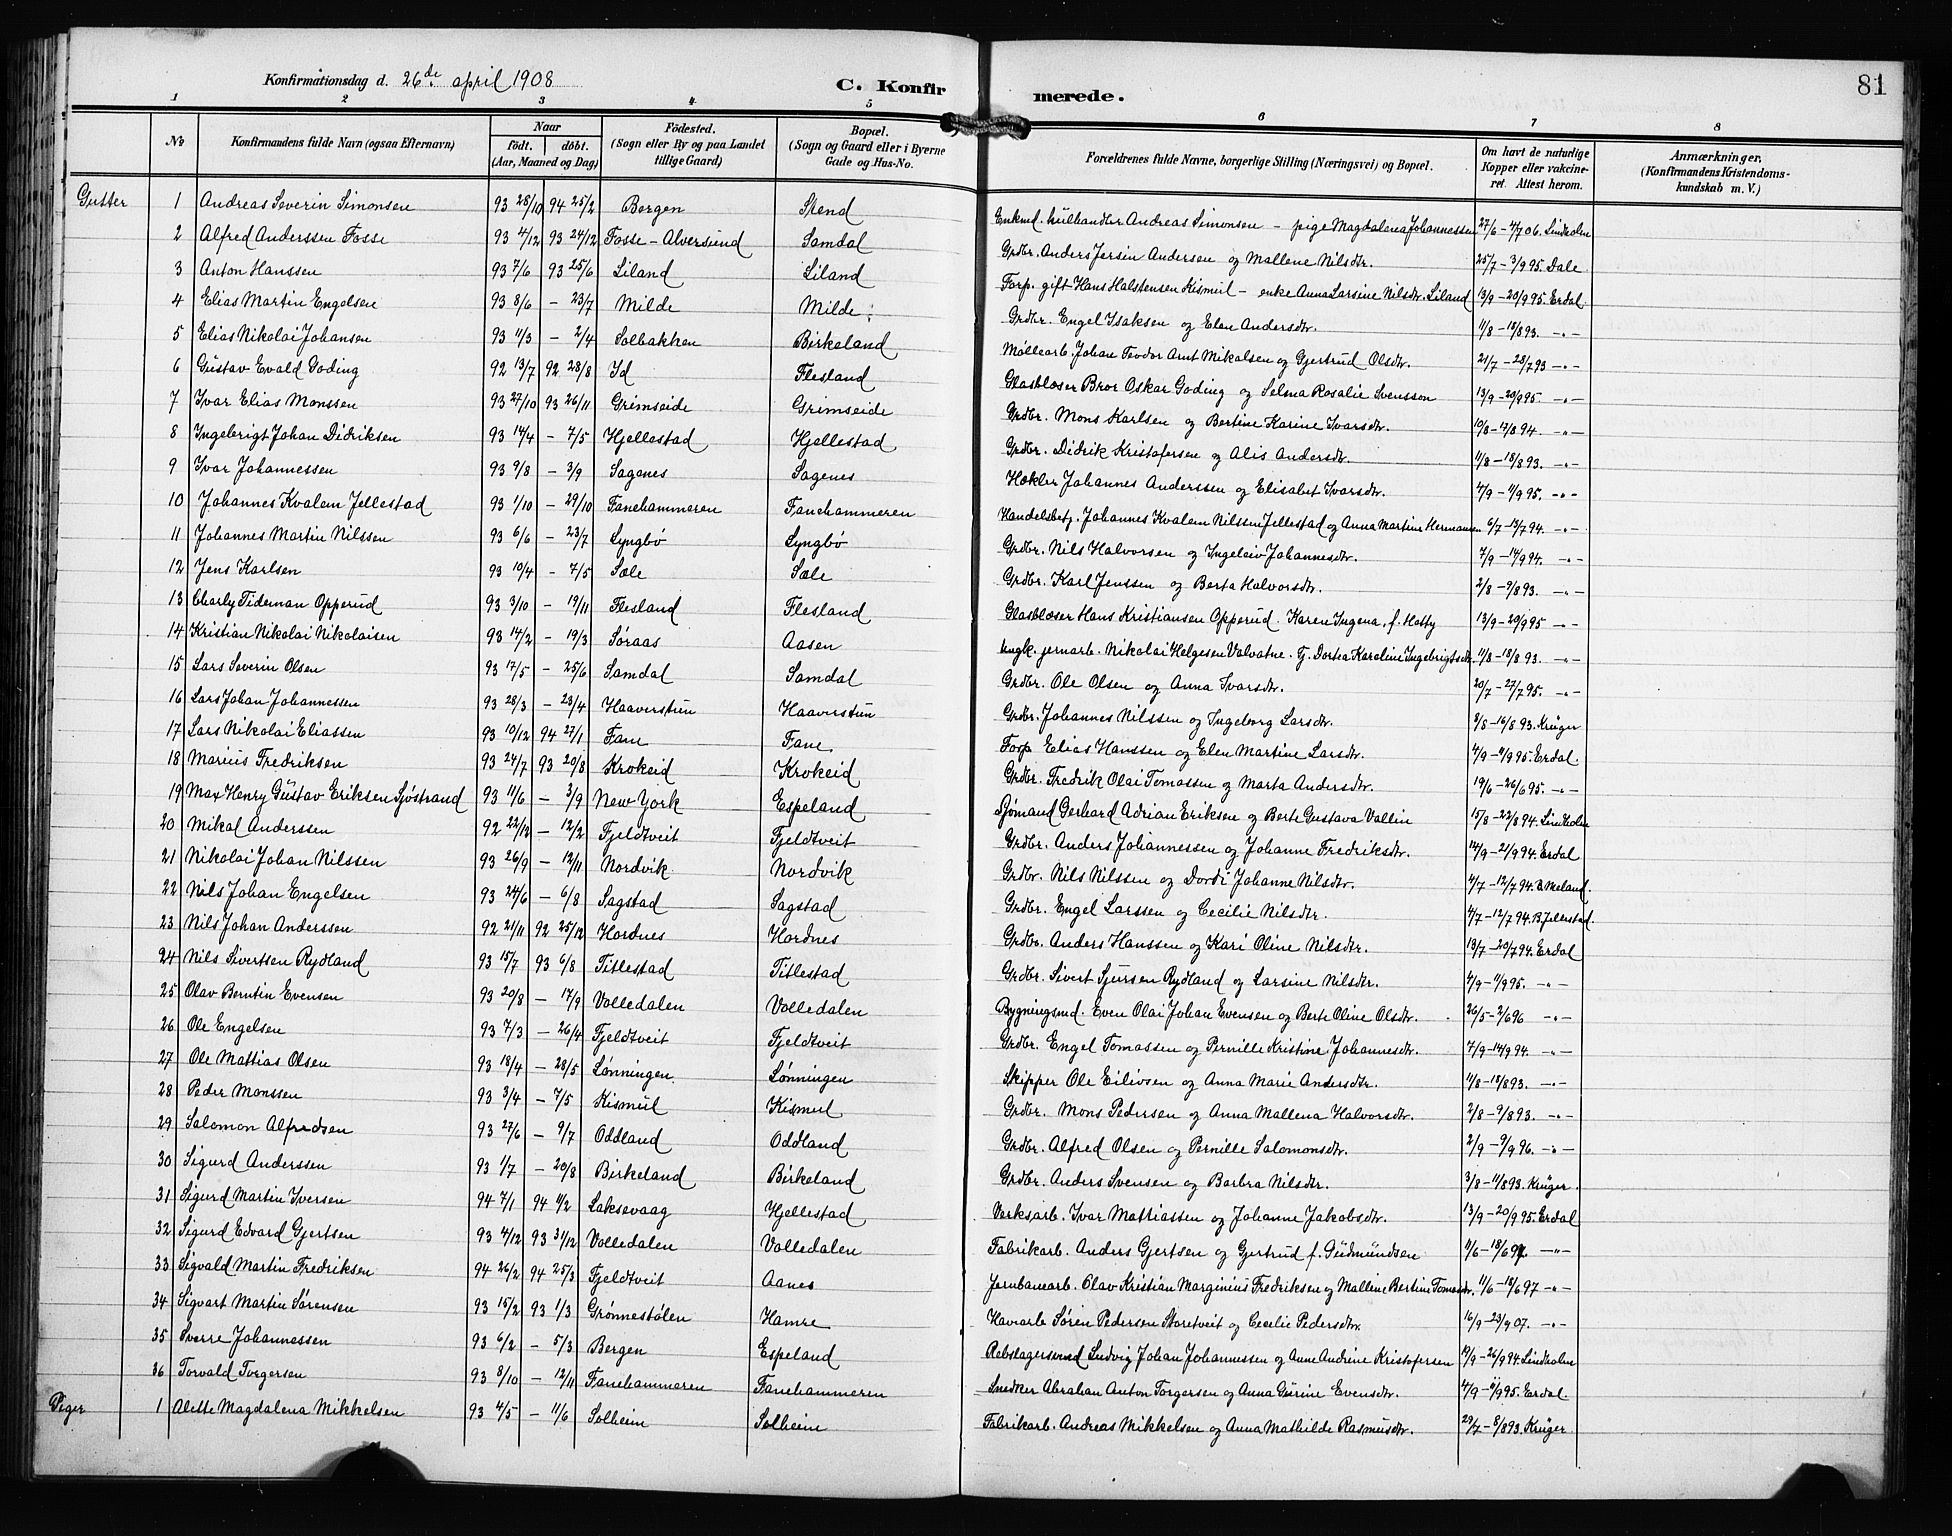 81
Konfirmationsdag d. 26de april 1908
C. Konfirmerede.
1 2 3 4 5 6 7 8
No
Konfirmandens fulde Navn (ogsaa Efternavn)
Naar
födt. döbt.
(Aar, Maaned og Dag)
Födested.
(Sogn eller By og paa Landet
tillige Gaard)
Bopæl.
(Sogn og Gaard eller i Byerne
Gade og Hus-No.
Forældrenes fulde Navne, borgerlige Stilling (Næringsvei) og Bopæl.
Om havt de naturlige
Kopper eller vakcine-
ret. Attest herom.
Anmærkninger.
(Konfirmandens Kristendoms-
kundskab m. V.)
Gutter 1 Andreas Severin Simonsen 93 28/10 94 25/2 Bergen Stend Enkmd. kulhandler Andreas Simonsen – pige Magdalena Johannessen 27/6 – 4/7 06. Lindholm
2 Alfred Anderssen Fosse 93 4/12 93 24/12 Fosse – Alversund Samdal Grdbr. Anders Jersin Andersen og Mallene Nilsdtr. 25/7 – 3/9 95. Dale
3 Anton Hanssen 93 7/6 93 25/6 Liland Liland Forp. gift Hans Halstensen Kismul – enke Anna Larsine Nilsdtr. Liland 13/9 – 20/9 95. Erdal
4 Elias Martin Engelsen 93 8/6 – 23/7 Milde Milde Grdbr. Engel Isaksen og Elen Andersdtr. 11/8 – 18/8 93. –"–
5 Elias Nikolai Johansen 93 11/3 – 2/4 Solbakken Birkeland Møllearb. Johan Teodor Arnt Mikalsen og Gjertrud Olsdtr. 21/7 – 28/7 93 –"–
6 Gustav Evald Goding 92 13/7 92 28/8 Id Flesland Glasblæser Bror Oskar Goding og Selma Rosalie Svensson 13/9 – 20/9 95. –"–
7 Ivar Elias Monssen 93 27/10 93 26/11 Grimseide Grimseide Grdbr. Mons Karlsen og Bertine Karine Ivarsdtr. 10/8 – 17/8 94. –"–
8 Ingebrigt Johan Didriksen 93 14/4 – 7/5 Hjellestad Hjellestad Grdbr. Didrik Kristofersen og Alis Andersdtr. 11/8 – 18/8 93. –"–
9 Ivar Johannessen 93 9/8 – 3/9 Sagenes Sagenes Høkler Johannes Anderssen og Elisabet Ivarsdtr. 4/9 – 11/9 95. –"–
10 Johannes Kvalem Jellestad 93 1/10 – 29/10 Fanehammeren Fanehammeren Handelsbetj. Johannes Kvalem Nilssen Jellestad og Anna Martine Hermansen 6/7 – 14/7 94. –"–
11 Johannes Martin Nilssen 93 6/6 – 23/7 Lyngbö Lyngbö Grdbr. Nils Halvorsen og Ingeleiv Johannesdtr. 7/9 – 14/9 94. –"–
12 Jens Karlsen 93 10/4 – 7/5 Sæle Sæle Grdbr. Karl Jenssen og Berta Halvorsdtr. 2/8 – 9/8 93. –"–
13 Charly Tideman Opperud 93 3/10 – 19/11 Flesland Flesland Glasblæser Hans Kristiansen Opperud. Karen Ingena, f. Hotty 13/9 – 20/9 95 –"–
14 Kristian Nikolai Nikolaisen 93 14/2 – 19/3 Søraas Aasen Ungk. jernarb. Nikolai Helgesen Valvatne. Tj. Dortea Karoline Ingebrigtsdtr. 11/8 – 18/8 93. –"–
15 Lars Severin Olsen 93 17/5 – 25/6 Samdal Samdal Grdbr. Ole Olsen og Anna Ivarsdtr. 20/7 – 27/7 95. –"–
16 Lars Johan Johannessen 93 28/3 – 23/4 Haaverstun Haaverstun Grdbr. Johannes Nilssen og Ingeborg Larsdtr. 8/8 – 16/8 93. Krüger
17 Lars Nikolai Eliassen 93 10/12 94 27/1 Fane Fane Forp Elias Hanssen og Elen Martine Larsdtr. 4/9 – 11/9 95. Erdal
18 Marius Fredriksen 93 24/7 93 20/8 Krokeid Krokeid Grdbr. Fredrik Olai Tomassen og Marta Andersdtr. 19/6 – 26/6 95. –"–
19 Max Henry Gustav Eriksen Sjöstrand 93 11/6 – 3/9 New York Espeland Sjømand Gerhard Adrian Eriksen og Berte Gustava Vallin 15/8 – 22/8 94. Lindholm
20 Mikal Anderssen 92 22/12 – 12/2 Fjeldtveit Fjeldtveit Grdbr. Anders Johannessen og Johanne Fredriksdtr. 14/9 – 21/9 94. Erdal
21 Nikolai Johan Nilssen 93 26/9 – 12/11 Nordvik Nordvik Grdbr. Nils Nilssen og Dordi Johanne Nilsdtr. 4/7 – 12/7 94.
22 Nils Johan Engelsen 93 24/6 – 6/8 Sagstad Sagstad Grdbr. Engel Larssen og Cecilie Nilsdtr. 4/7 – 12/7 94. B. Jellestad.
23 Nils Johan Anderssen 92 21/11 92 25/12 Hordnes Hordnes Grdbr. Anders Hanssen og Kari Oline Nilsdtr. 13/7 – 20/7 94. Erdal
24 Nils Sivertsen Rydland 93 15/7 93 6/8 Titlestad Titlestad Grdbr. Sivert Sjursen Rydland og Larsine Nilsdtr. 4/9 – 11/9 95. –"–
25 Olav Berntin Evensen 93 20/8 – 17/9 Volledalen Volledalen Bygningsmd. Even Olai Johan Evensen og Berte Oline Olsdtr. 26/5 – 2/6 96 –"–
26 Ole Engelsen 93 7/3 – 26/4 Fjeldtveit Fjeldtveit Grdbr. Engel Tomassen og Pernille Kristine Johannesdtr. 7/9 – 14/9 94. –"–
27 Ole Mattias Olsen 93 18/4 – 28/5 Lønningen Lønningen Skipper Ole Eilivsen og Anna Marie Andersdtr. 11/8 – 18/8 93. –"–
28 Peder Monssen 93 3/4 – 7/5 Kismul Kismul Grdbr. Mons Pedersen og Anna Mallena Halvorsdtr. 2/8 – 9/8 93. –"–
29 Salomon Alfredsen 93 27/6 – 9/7 Oddland Oddland Grdbr. Alfred Olsen og Pernille Salomonsdtr. 2/9 – 9/9 96. –"–
30 Sigurd Anderssen 93 1/7 – 20/8 Birkeland Birkeland Grdbr. Anders Svensen og Barbra Nilsdtr. 3/8 – 11/8 93. Krüger.
31 Sigurd Martin Iversen 94 7/1 94 11/2 Laksevaag Hjellestad Verksarb. Ivar Mattiassen og Johanne Jakobsdtr. 13/9 – 20/9 95. Erdal
32 Sigurd Edvard Gjertsen 93 4/12 93 31/12 Volledalen Volledalen Fabrikarb. Anders Gjertsen og Gjertrud f. Gudmundsen 11/6 – 18/6 –"–
33 Sigvald Martin Fredriksen 94 26/2 94 25/3 Fjeldtveit Aanes Jernbanearb. Olav Kristian Marginius Fredriksen og Mallene Bertine Tomasdtr. 11/6 – 18/6 97 –"–
34 Sigvart Martin Sørensen 93 15/2 93 1/3 Grønnestølen Hamre Havnarb Søren Pedersen Storetveit og Cecilie Pedersdtr. 16/9 – 23/9 07. –"–
35 Sverre Johannessen 93 6/2 – 5/3 Bergen Espeland Rebslagersvend Ludvig Johan Johannessen og Anne Andrine Kristofersen 19/9 – 26/9 94. Lindholm
36 Torvald Torgersen 93 8/10 – 12/11 Fanehammeren Fanehammeren Snedker Abraham Anton Torgersen og Anna Gurine Evensdtr. 4/9 – 11/9 95. Erdal.
Piger 1 Alette Magdalena Mikkelsen 93 4/5 – 11/6 Solheim Solheim Fabrikarb. Andreas Mikkelsen og Anna Mathilde Rasmusdtr. 29/7 – 8/8 93. Krüger